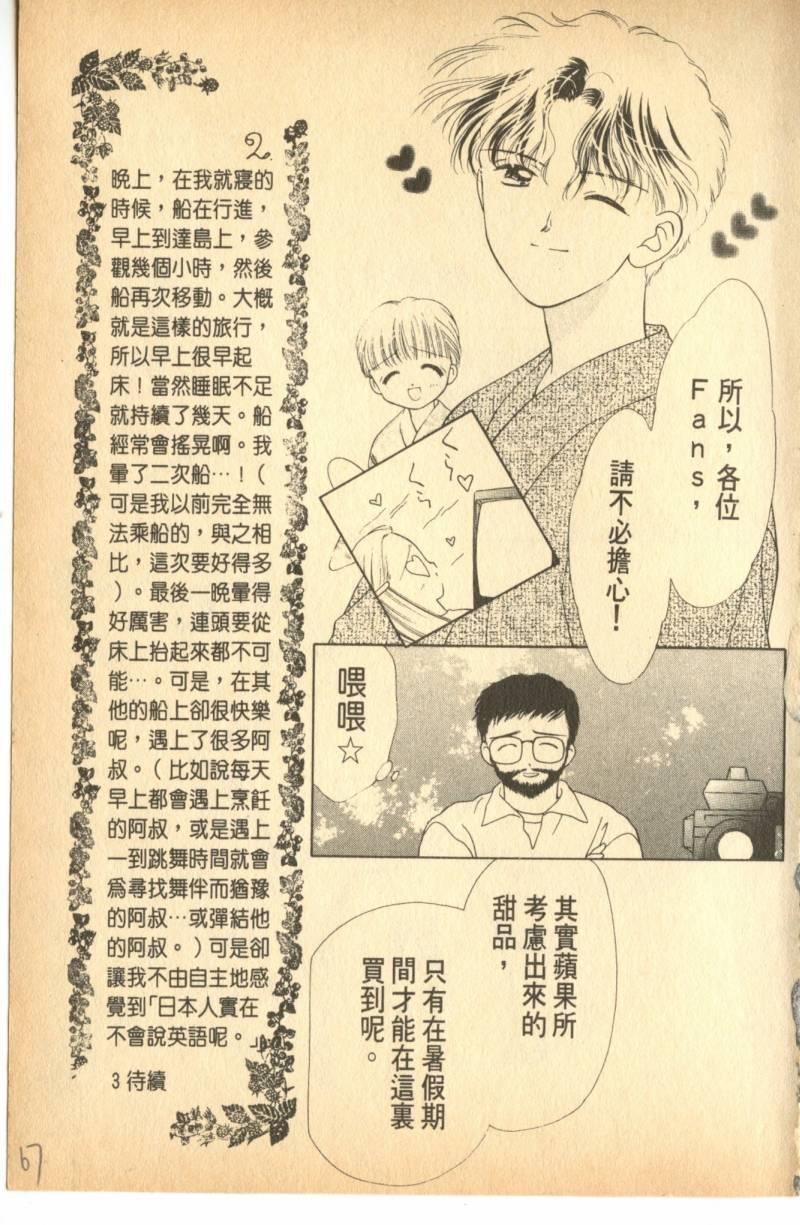 所以，各位
Fans，
請不必擔心！
喂
喂
☆
其實蘋果所
考慮出來的
甜品，
只有在暑假期
間才能在這裏
買到呢。
2.
晚上，在我就寢的
時候，船在行進，
早上到達島上，參
觀幾個小時，然後
船再次移動。大概
就是這樣的旅行，
所以早上很早起
床！當然睡眠不足
就持續了幾天。船
經常會搖晃啊。我
暈了二次船…！（
可是我以前完全無
法乘船的，與之相
比，這次要好得多
）。最後一晚暈得
好厲害，連頭要從
床上抬起來都不可
能…。可是，在其
他的船上卻很快樂
呢，遇上了很多阿
叔。（比如說每天
早上都會遇上烹飪
的阿叔，或是遇上
一到跳舞時間就會
為尋找舞伴而猶豫
的阿叔…或彈結他
的阿叔。）可是卻
讓我不由自主地感
覺到「日本人實在
不會說英語呢。」
3待續
67